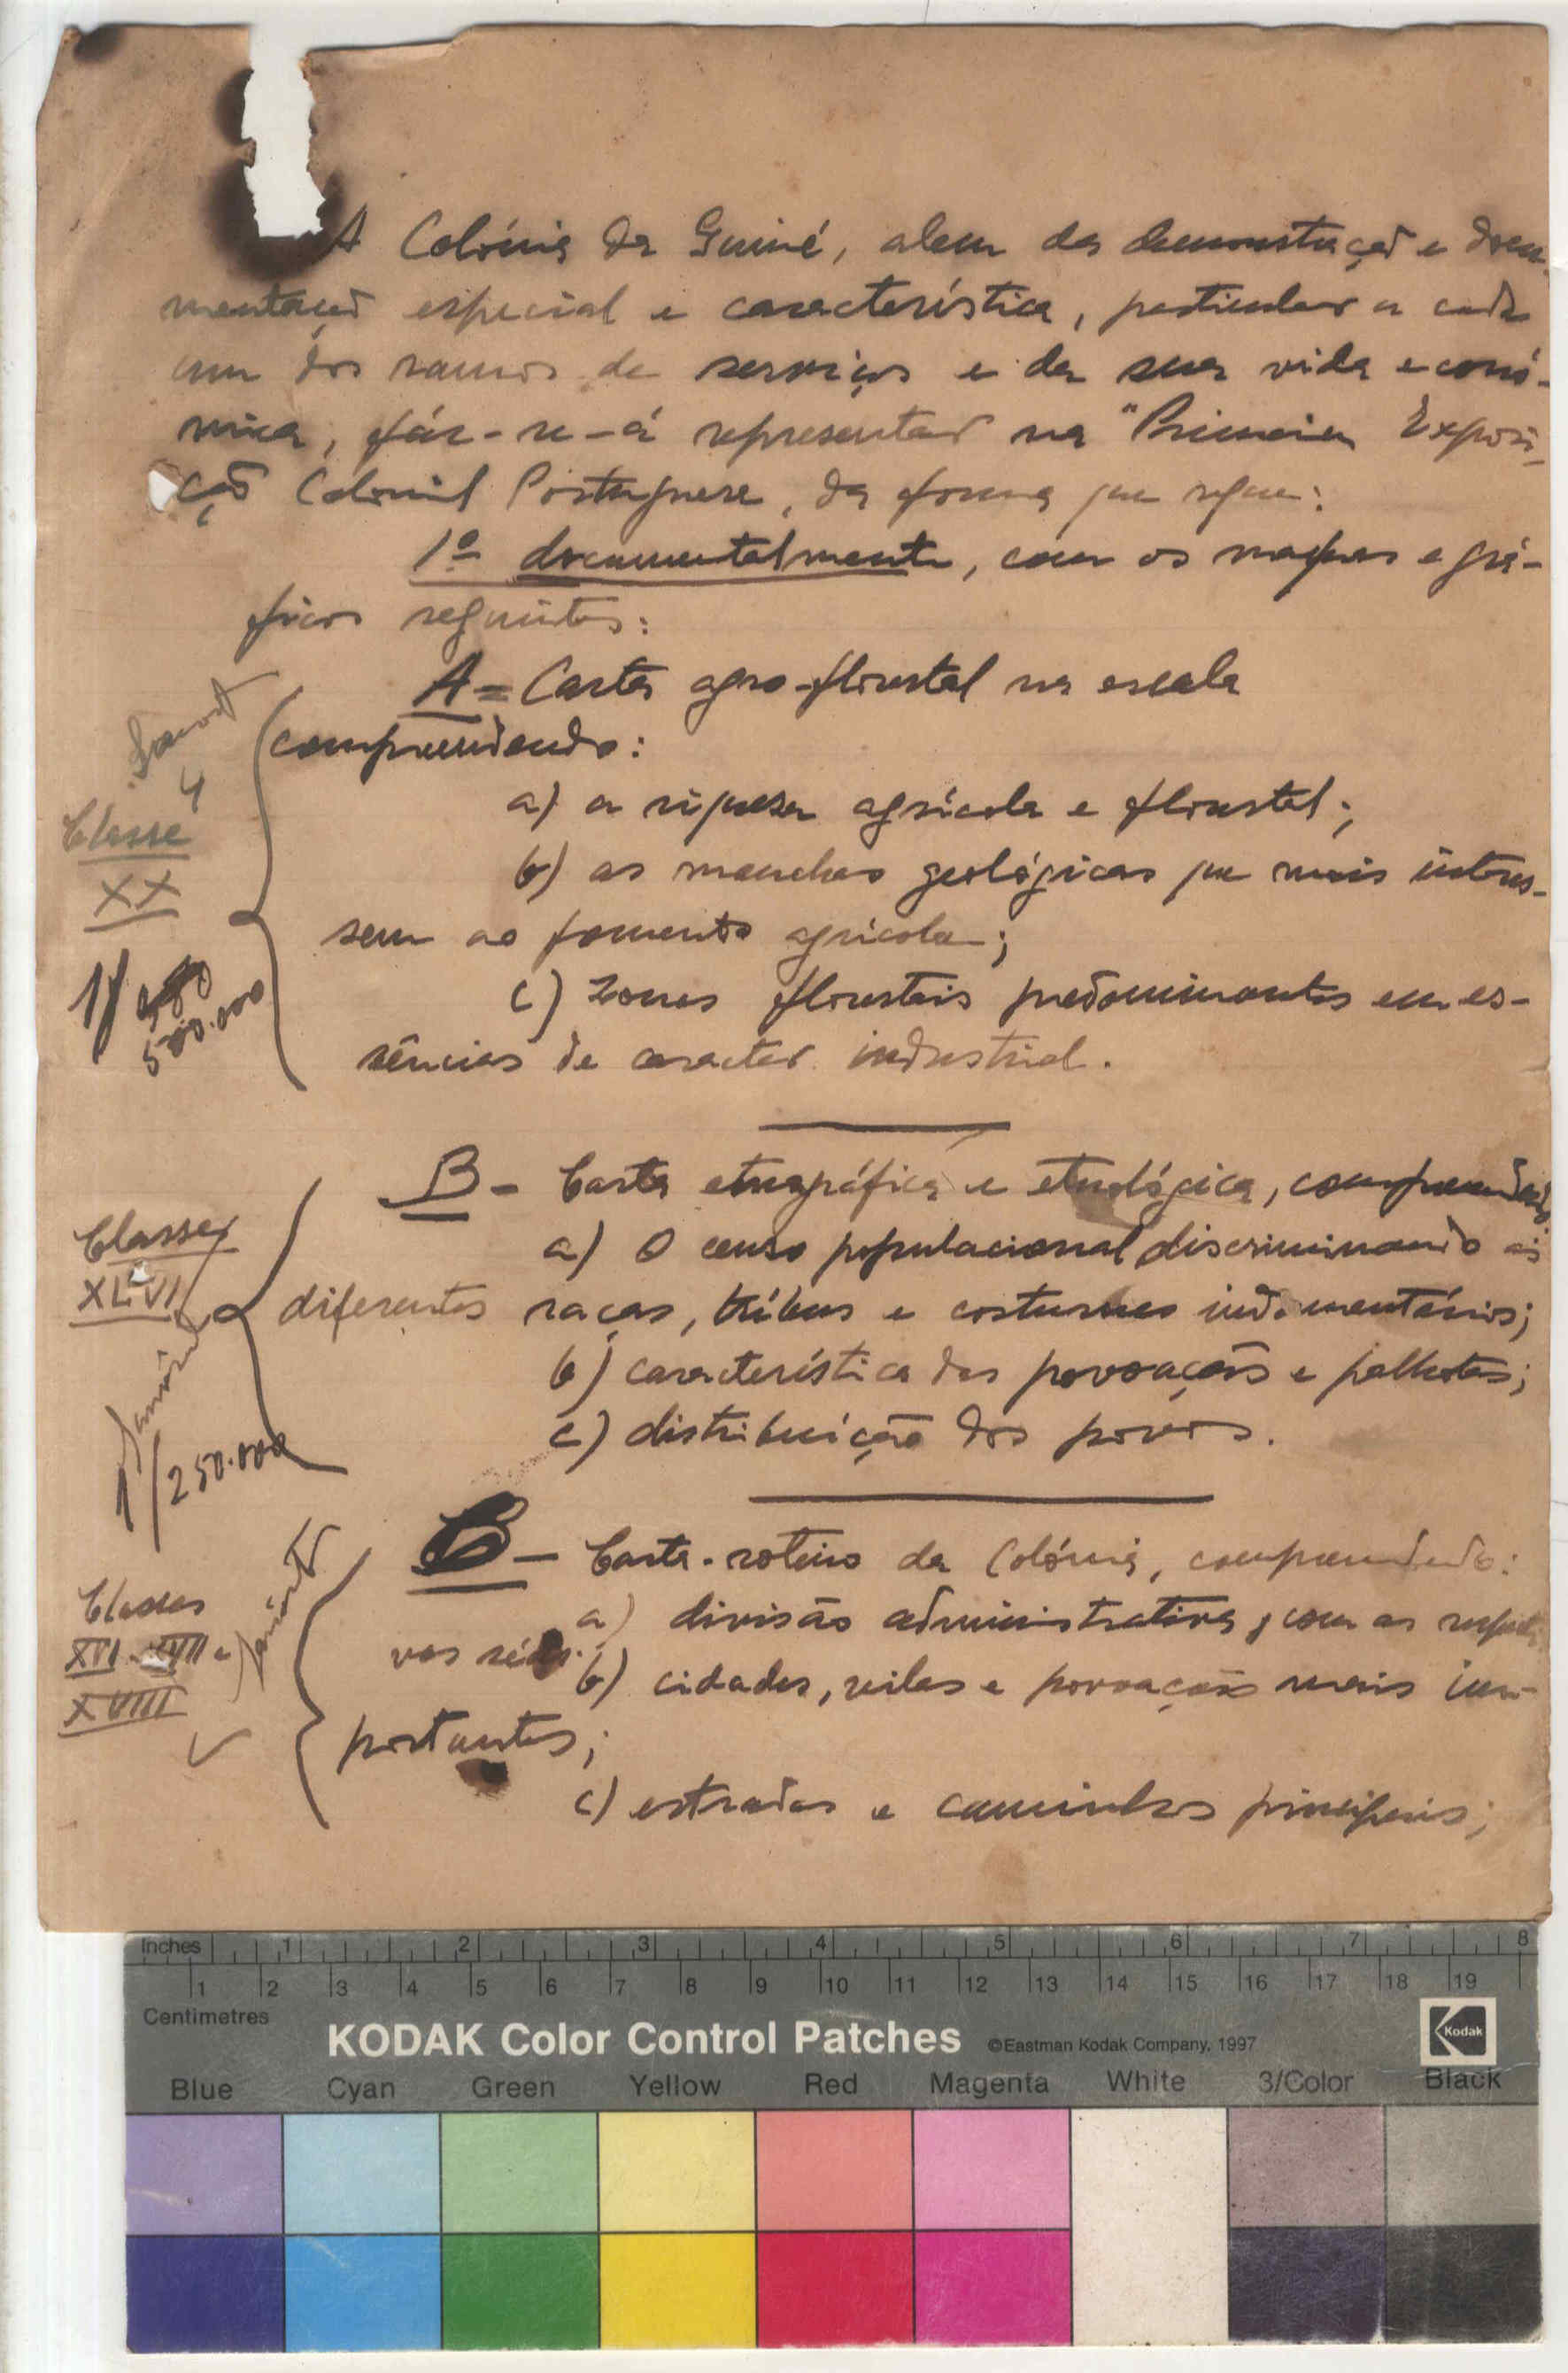 A Colónia da Guiné, alem da demonstração e docu-
mentação especial e característica, particular a cada
um dos ramos de serviços e da sua vida econó-
mica, fár-se-á representar na "Primeira Exposi-
ção Colonial Portuguesa, da forma que segue:
1º documentalmente, com os mapas e grá-
ficos seguintes:
A = Carta agro-florestal na escala
comprendendo:
a) a riqueza agrícola e florestal;
b) as manchas geológicas que mais interes-
sem ao fomento agrícola;
c) zonas florestais predominantes em es-
sências de caracter industrial.
Classe
XX
1/
500.000
B - Carta etnográfica e etnológica, comprendendo
a) O censo populacional discriminando as
diferentes raças, tríbus e costumes indumentários;
b) característica das povoações e palhotas;
c) distribuição dos povos.
Classes
XLVI
1/250.000
C - Carta-roteiro da Colónia, comprendendo:
a) divisão administrativa, com as respecti
vas sédes.
b) cidades, vilas e povoações mais im-
portantes;
c) estradas e caminhos principais;
Classes
XVI-XVII e
XVIII
Inches 1 2 3 4 5 6 7 8
1 2 3 4 5 6 7 8 9 10 11 12 13 14 15 16 17 18 19
Centimetres
KODAK Color Control Patches ©Eastman Kodak Company, 1997 Kodak
Blue Cyan Green Yellow Red Magenta White 3/Color Black